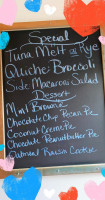 Special
Tuna Melt on Rye
Quiche-Broccoli
Side Macaroni Salad
Dessert
Mint Brownie
Chocolate Chip Pecan Pie
Coconut Cream Pie
Chocolate Peanutbutter Pie
Oatmeal Raisin Cookie